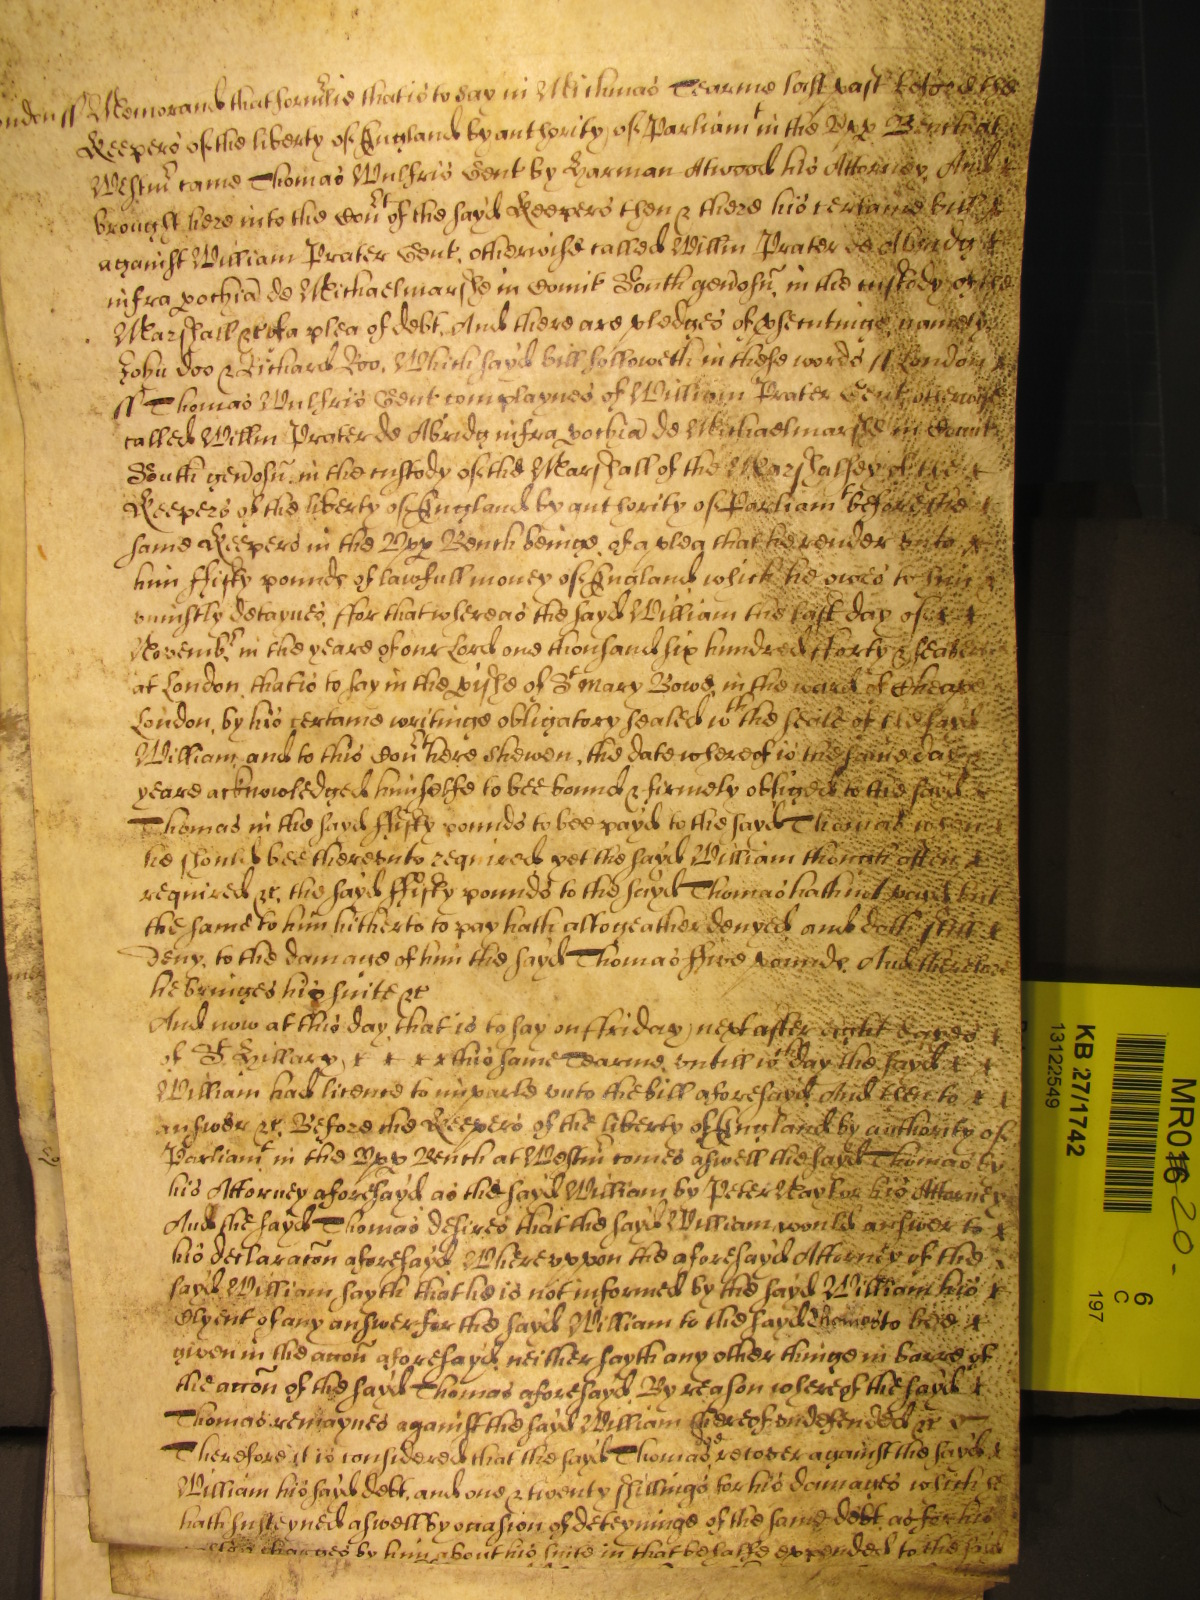 London ss Memorand that formlie that is to say in Michmas Tearme last past before the
Keepers of the liberty of England by authority of Parliamt in the Upp Bench at
Westmr came Thomas Gent by Harman Atwood his Attorney And
brought here into the Court of the sayd Keepers then & there his certaine bill
against William Prater Gent. otherwise called Willm Prater de Abridg
infra pochia de Michaelmarshe in Comit Southt in the custody of the
Marshall &c of a plea of debt. And there are pledges of psecutinge namely
John Doo & Richard Roo. Which sayd bill followeth in these words ss London
ss Thomas Gent complaynes of William Prater Gent otherwise
called Willm Prater de Abridg infra pochia de Michaelmarshe in Comit
Southt in the custody of the Marshall of the Marshalsey of the
Keepers of the liberty of England by authority of Parliamt before the
same Keepers in the Upp Bench beinge. of a plea that he render unto
him ffifty pounds of lawfull money of England which he owes to him &
uniustly detaynes. ffor that whereas the sayd William the last day of
Novembr in the yeare of our Lord one thousand six hundred fforty & seaven
at London. that is to say in the pishe of St Mary Bowe in the ward of Cheape
London. by his certaine writinge obligatory sealed wth the seale of the sayd
William and to this Court here shewen. the date whereof is the same day &
yeare acknowledged himselfe to bee bound & firmely obliged to the sayd
Thomas in the sayd ffifty pounds to bee payd to the sayd Thomas when
he should bee thereunto required yet the sayd William though often
required &c. the sayd ffifty pounds to the sayd Thomas hath not payd but
the same to him hitherto to pay hath altogeather denyed and doth still
Deny. to the damage of him the sayd Thomas ffive pounds. And therefore
he bringes his suite &c
And now at this day that is to say on ffriday next after eight dayes
of St Hillary this same Tearme. untill wch day the sayd
William had licence to imparle unto the bill aforesayd And then to
answer &c. Before the Keepers of the liberty of England by authority of
Parliamt in the Upp Bench at Westmr comes aswell the sayd Thomas by
his Attorney aforesayd as the sayd William by Peter his Attorney
And the sayd Thomas desires that the sayd William would answer to
his declaracon aforesayd Whereuppon the aforesayd Attorney of the
sayd William sayth that he is not informed by the sayd William his
Clyent of any answer for the sayd William to the sayd Thomas to bee
given in the accon aforesayd neither sayth any other thinge in barre of
the accon of the sayd Thomas aforesayd By reason whereof the sayd
Thomas remaynes against the sayd William thereof undefended &c
Therefore it is considered that the sayd Thomas doe recover against the sayd
William his sayd debt. and one & twenty shillings for his damages which he
hath susteyned aswell by occasion of deteyninge of the same debt as for his
charges by him about his suite in that behalfe expended to the sayd
MR01
20
KB 27/1742
13122549
6
C
197